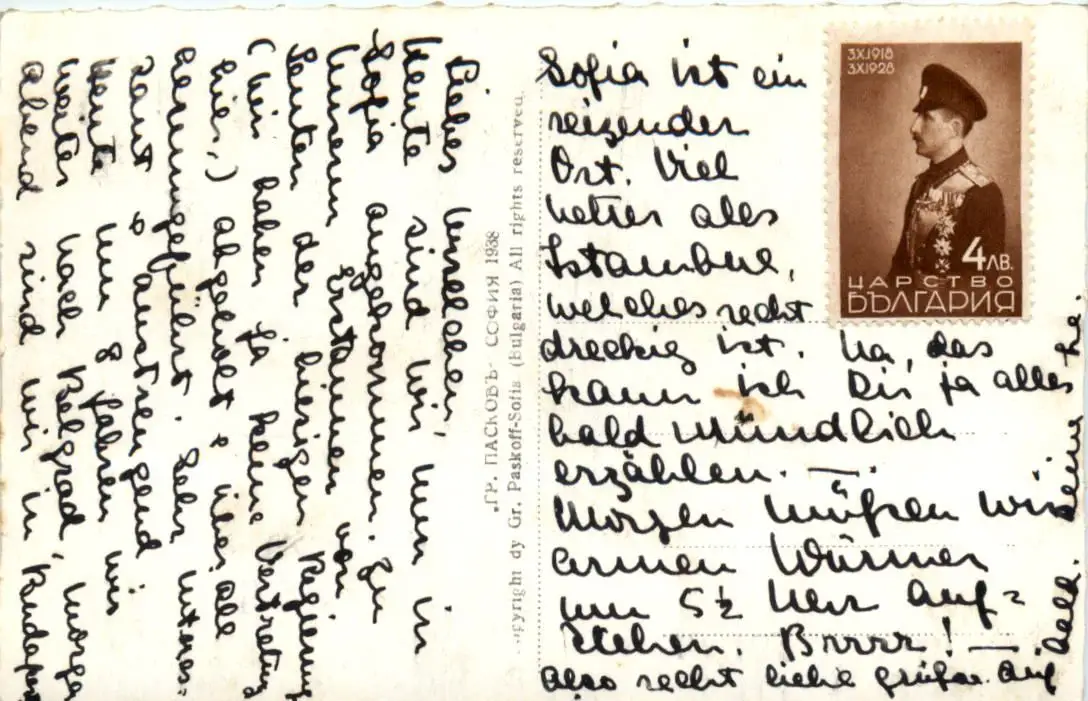 Liebes Urselchen,
Heute sind wir nun in
Sofia angekommen. Zu
unserm Erstaunen von
Leuten der hiesigen Regierung
(wir haben ja keine Vertretung
hier,) abgeholt & überall
herumgeführt. Sehr interes-
sant & anstrengend
Heute um 8 fahren wir
weiter nach Belgrad, morgen
abend sind wir in Budapest
"ГР. ПАСКОВЪ" СОФИЯ 1938
Copyright dy Gr. Paskoff-Sofia (Bulgaria) All rights reserved.
3.X.1918
3.X.1928
4 ЛВ.
ЦАРСТВО
БЪЛГАРИЯ
Sofia ist ein
reizender
Ort. Viel
netter als
Istambul,
welches recht
dreckig ist. Na, das
kann ich Dir ja alles
bald mündlich
erzählen. —.
Morgen müßen wir
armen Würmer
um 5½ Uhr auf=
stehen. Brrrr! —
Also recht liebe Grüße. Auf
bald. Deine